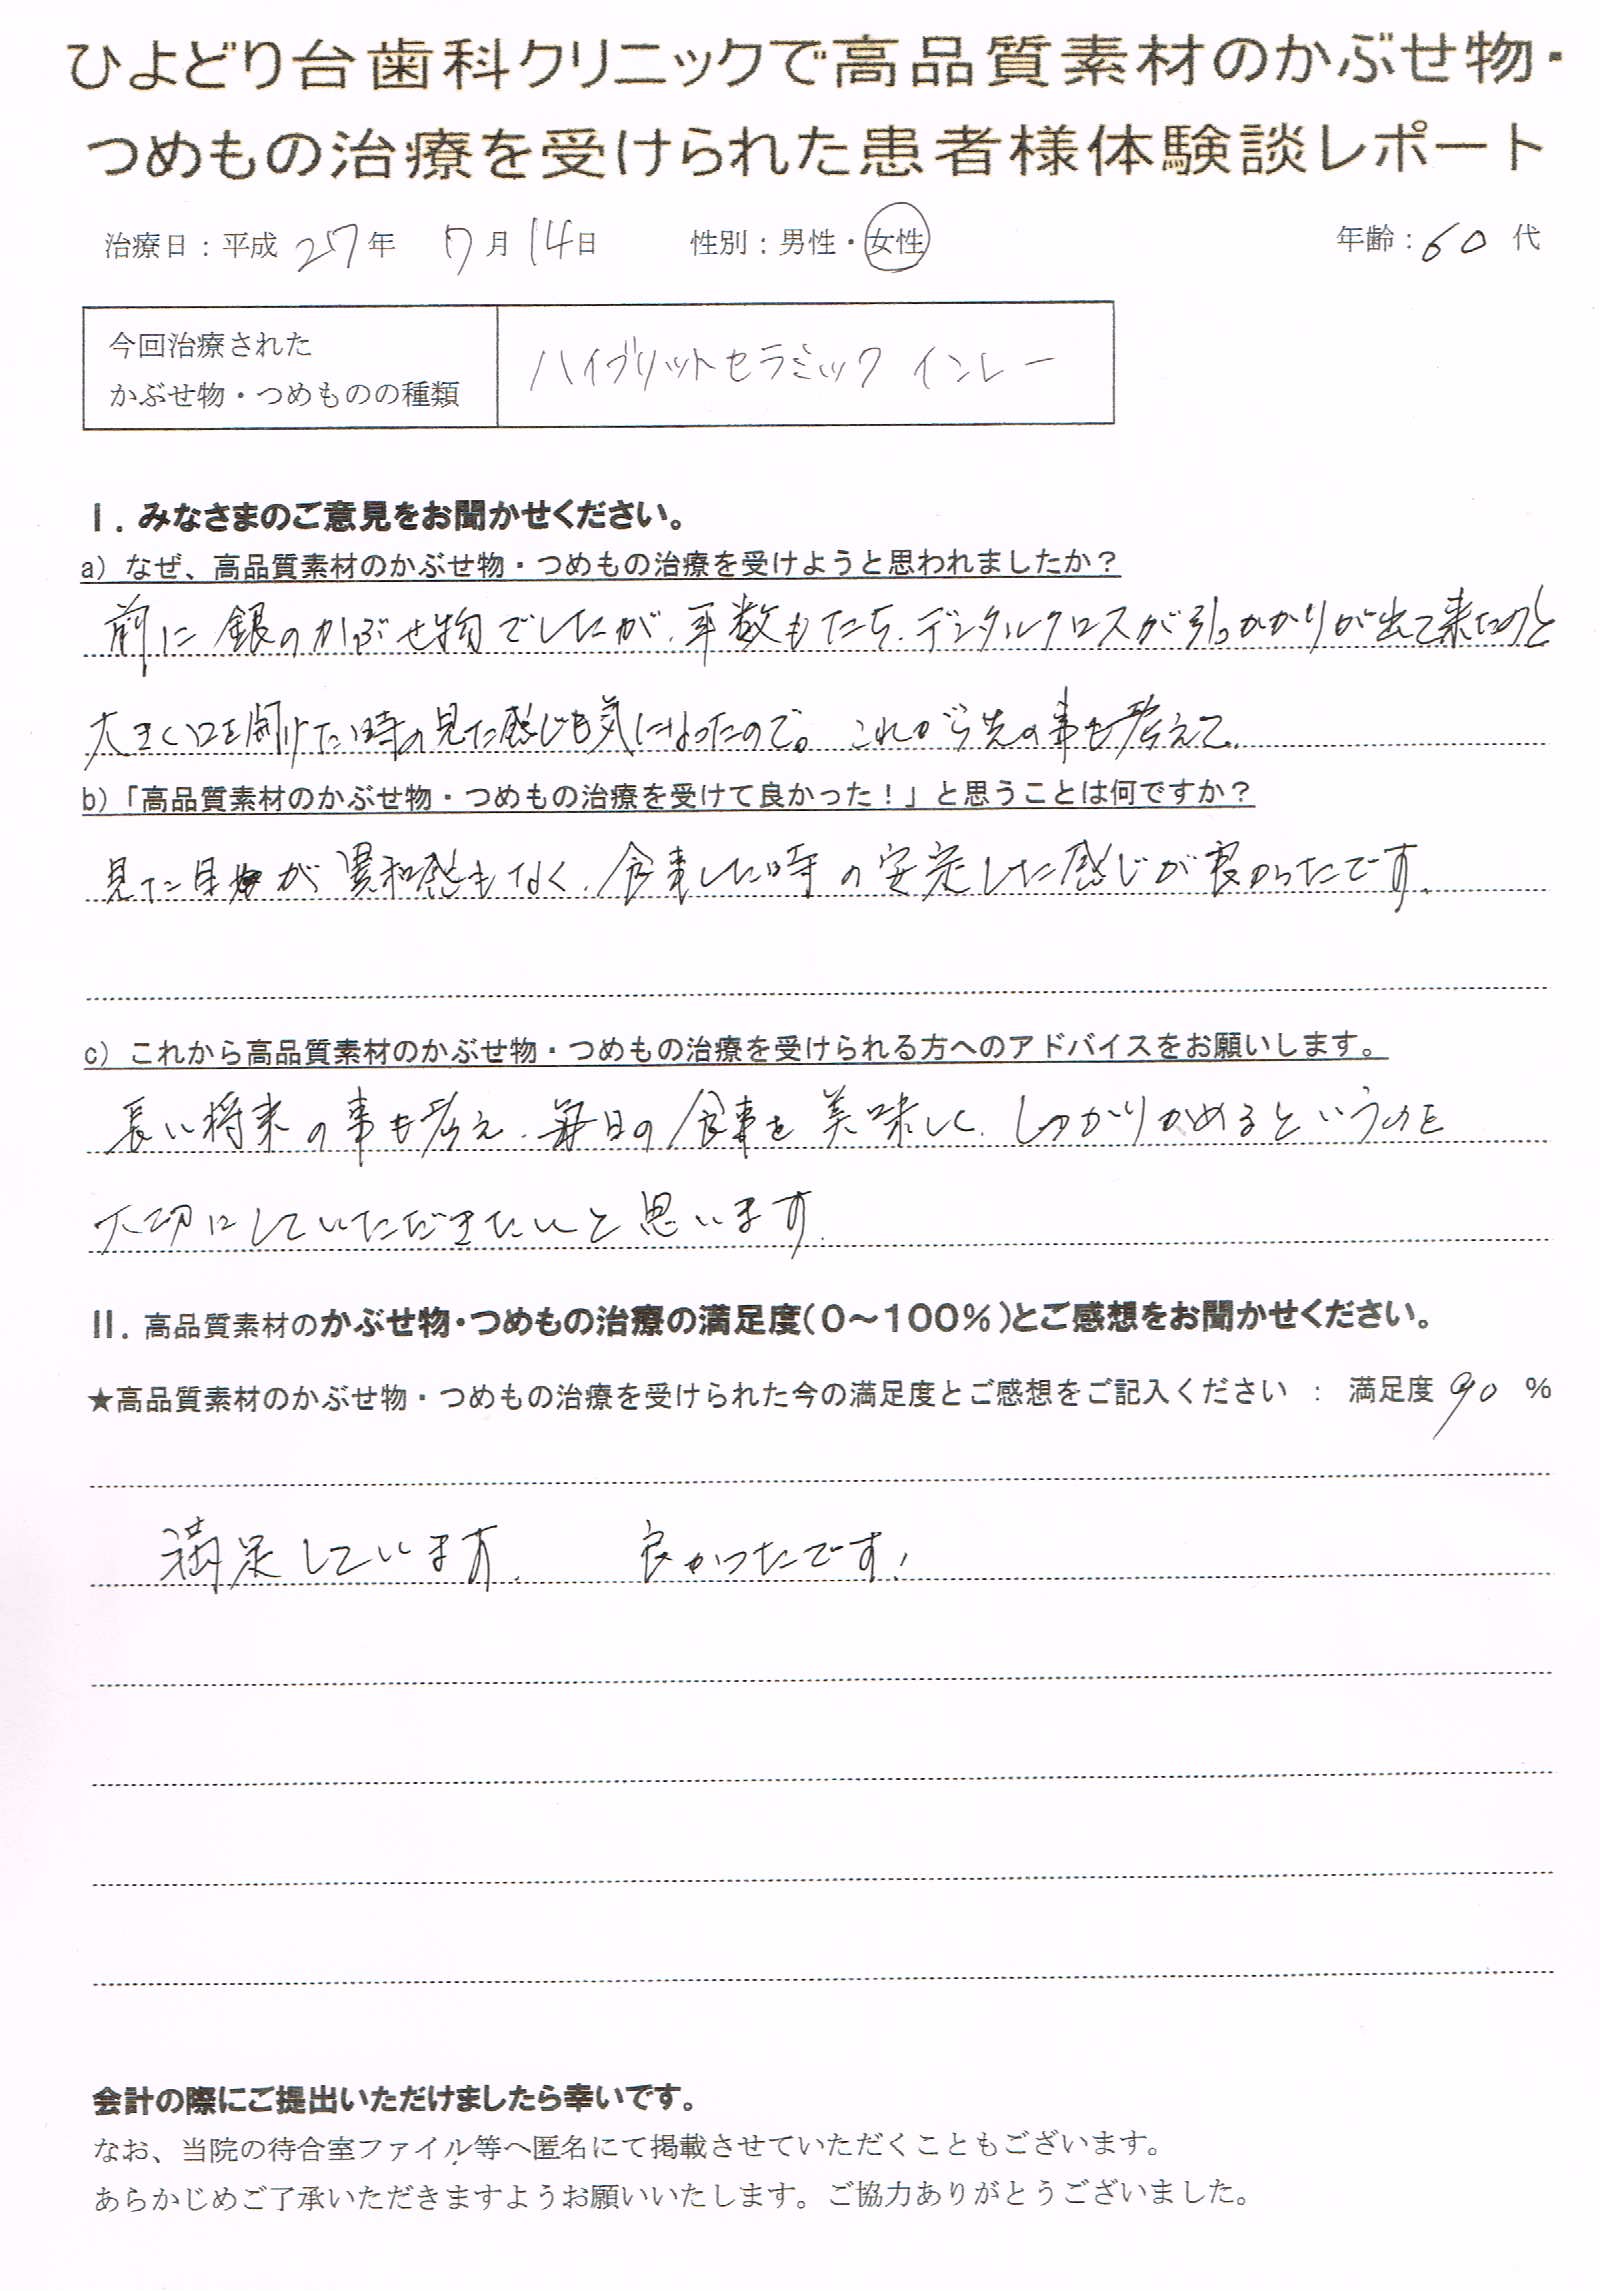 ひよどり台歯科クリニックで高品質素材のかぶせ物・
つめもの治療を受けられた患者様体験談レポート
治療日：平成 27年 7月 14日 性別：男性・女性 年齢：60 代
今回治療された
かぶせ物・つめものの種類
ハイブリットセラミック インレー
Ⅰ. みなさまのご意見をお聞かせください。
a) なぜ、高品質素材のかぶせ物・つめもの治療を受けようと思われましたか？
前に銀のかぶせ物でしたが、年数もたち、デンタルクロスが引っかかりが出て来たのと
大きく口を開けた時の見た感じも気になったので。これから先の事も考えて、
b)「高品質素材のかぶせ物・つめもの治療を受けて良かった！」と思うことは何ですか？
見た目が異和感もなく、食事した時の安定した感じが良かったです。
c) これから高品質素材のかぶせ物・つめもの治療を受けられる方へのアドバイスをお願いします。
長い将来の事も考え、毎日の食事を美味しく、しっかりかめるというのを
大切にしていただきたいと思います。
Ⅱ. 高品質素材のかぶせ物・つめもの治療の満足度（０～１００％）とご感想をお聞かせください。
★高品質素材のかぶせ物・つめもの治療を受けられた今の満足度とご感想をご記入ください ： 満足度 90 ％
満足しています。 良かったです！
会計の際にご提出いただけましたら幸いです。
なお、当院の待合室ファイル等へ匿名にて掲載させていただくこともございます。
あらかじめご了承いただきますようお願いいたします。ご協力ありがとうございました。